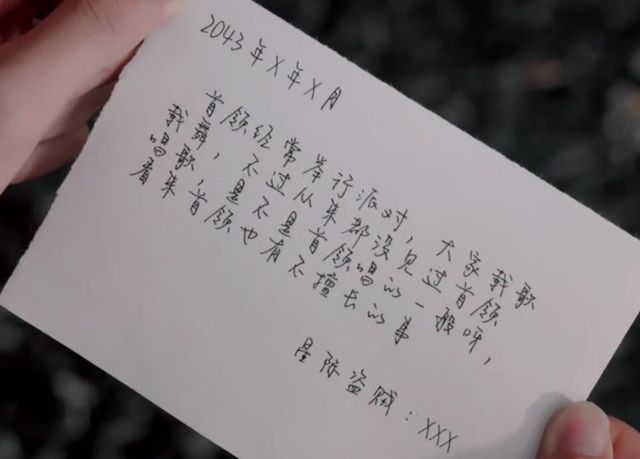 2043年X年X月
首领经常举行派对，大家载歌
载舞，不过从来都没见过首领
唱歌，是不是首领唱的一般呀，
看来首领也有不擅长的事
星际盗贼：XXX